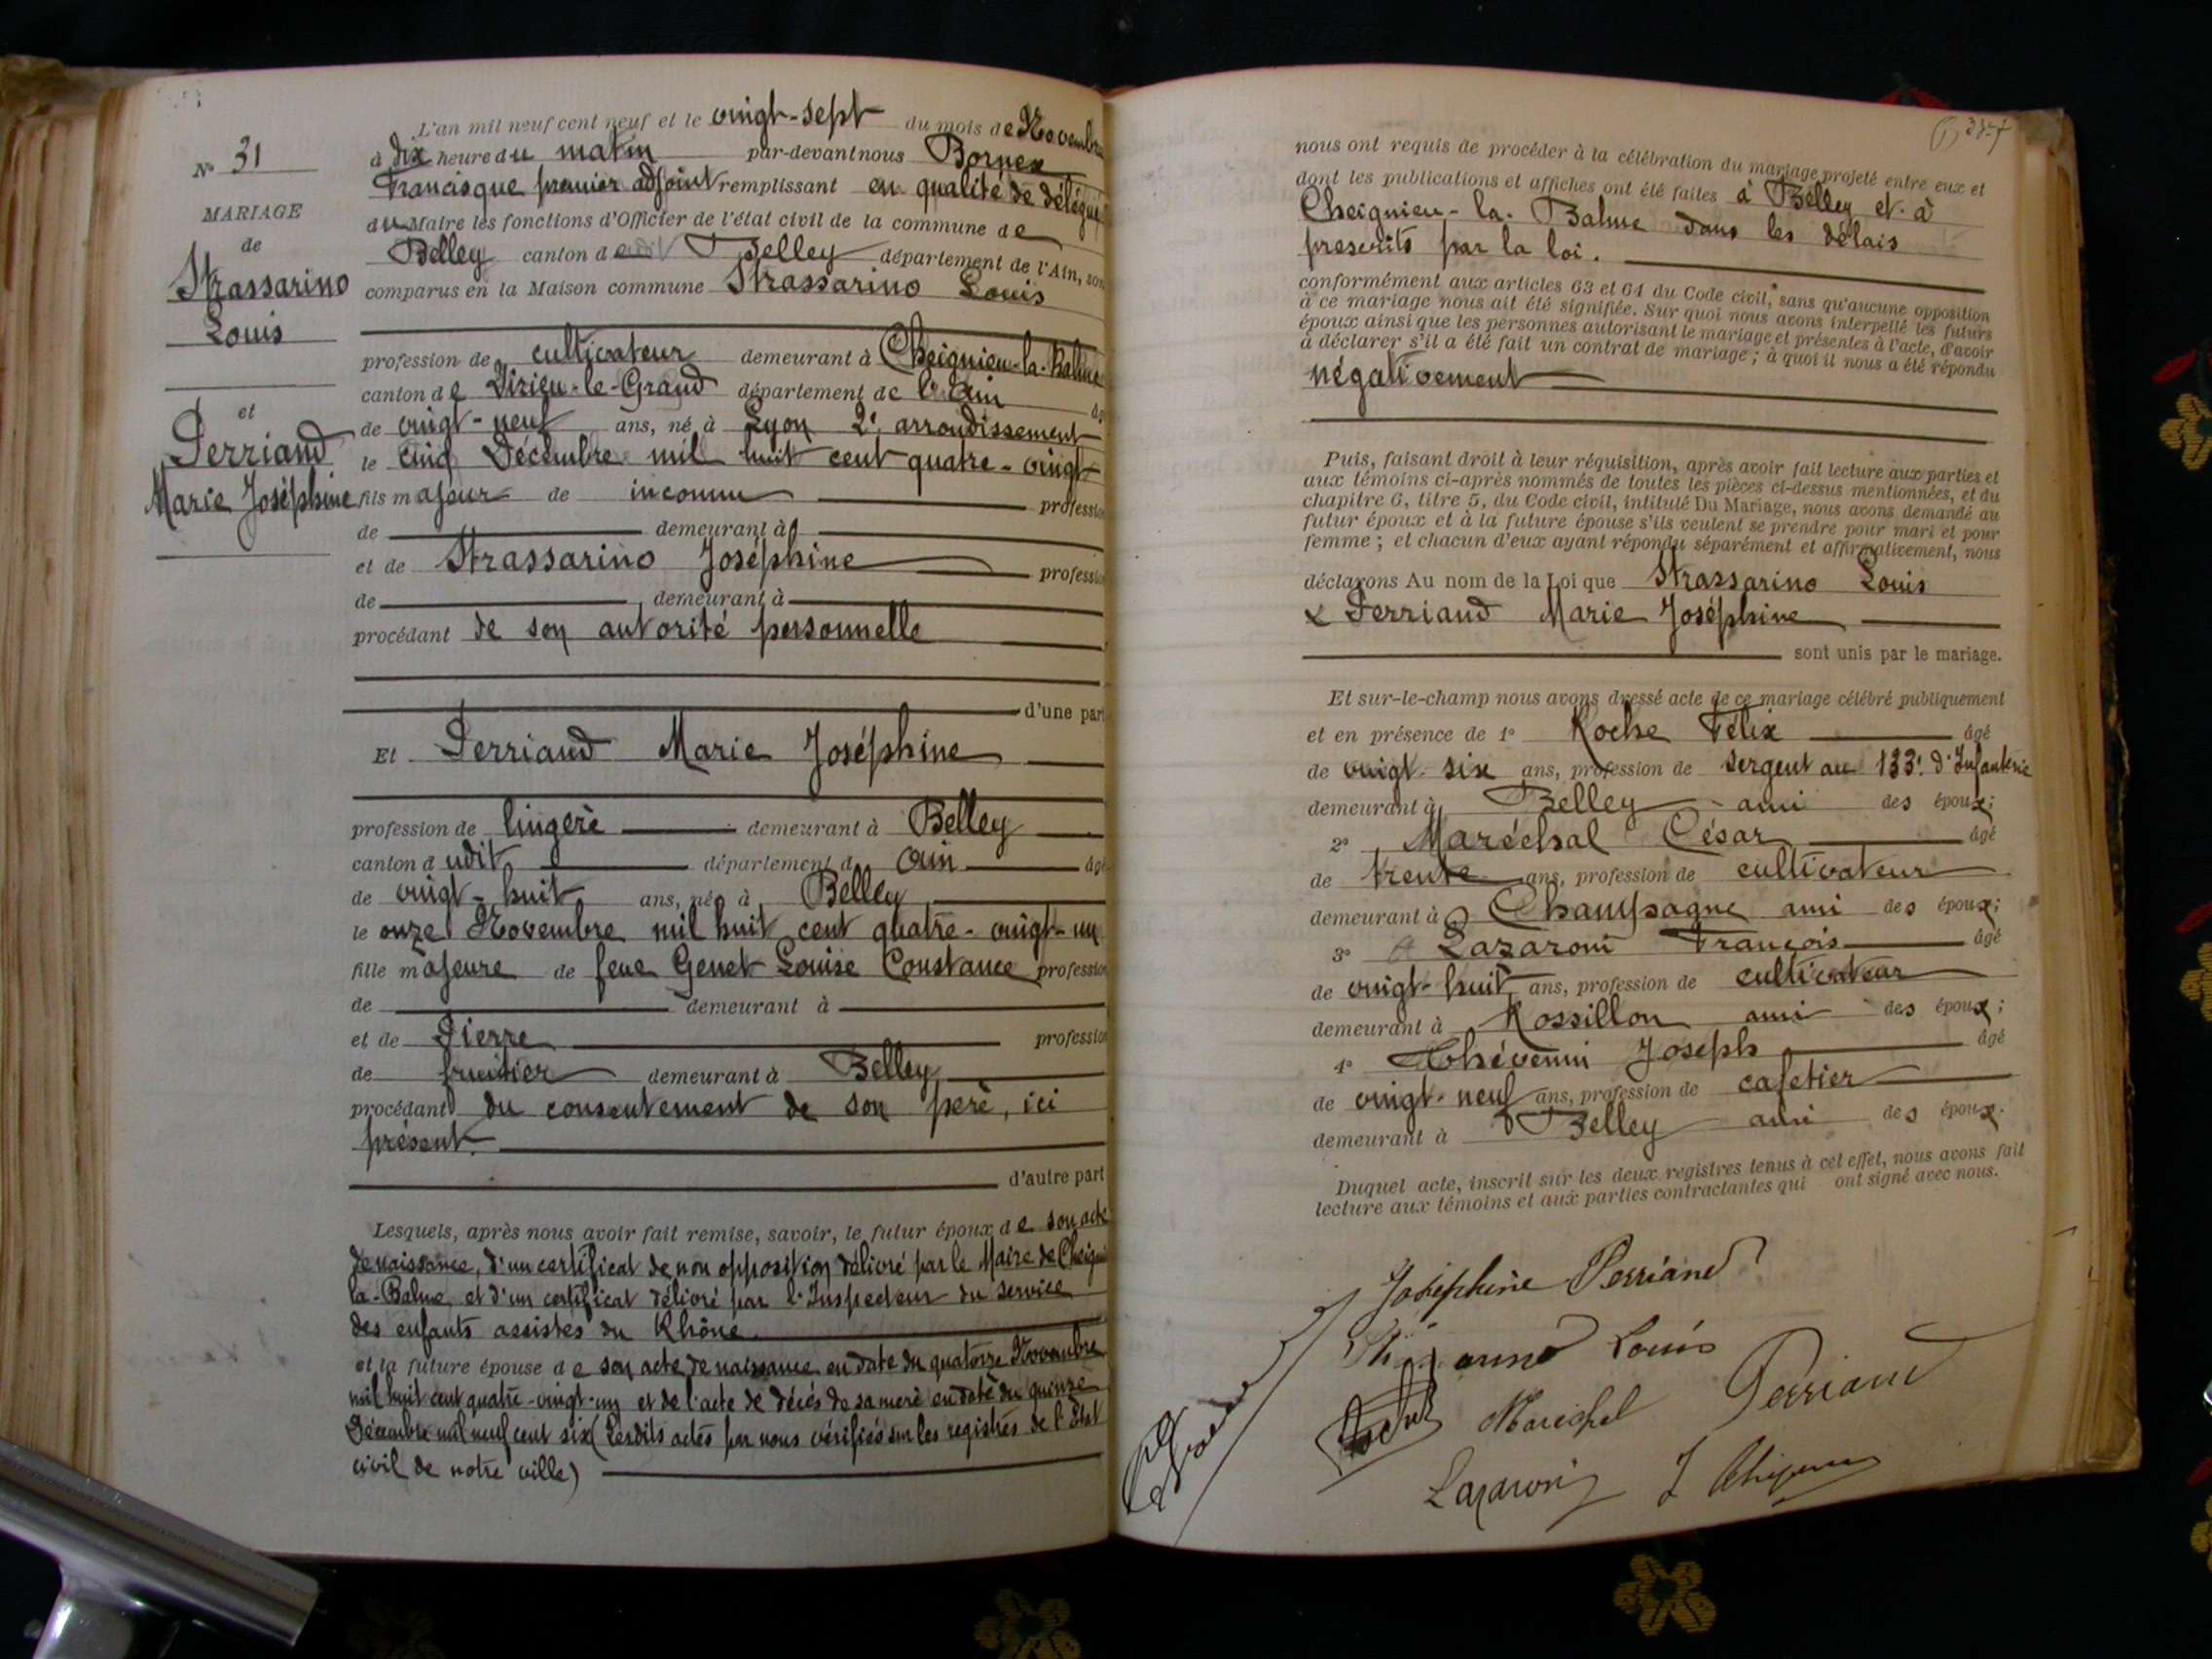 L'an mil neuf cent neuf et le vingt-sept du mois de Novembre
à dix heure du matin par-devant nous Bornex
Francisque premier adjoint remplissant en qualité de délégué
du Maire les fonctions d'Officier de l'état civil de la commune de
Belley canton de Belley département de l'Ain, son
comparus en la Maison commune Strassarino Louis
N° 31
MARIAGE
de
Strassarino
Louis
et
Perriand
Marie Joséphine
profession de cultivateur demeurant à Cheignieu-la-Balme
canton de Virieu-le-Grand département de l'Ain âg
de vingt-neuf ans, né à Lyon 2e arrondissement
le cinq Décembre mil huit cent quatre-vingt
fils majeur de inconnu profession
de demeurant à
et de Strassarino Joséphine profession
de demeurant à
procédant de son autorité personnelle
d'une part
Et Perriand Marie Joséphine
profession de lingère demeurant à Belley
canton dudit département d Ain âgé
de vingt-huit ans, née à Belley
le onze Novembre mil huit cent quatre-vingt-un
fille majeure de feue Genet Louise Constance profession
de demeurant à
et de Pierre profession
de fruitier demeurant à Belley
procédant du consentement de son père, ici
présent.
d'autre part
Lesquels, après nous avoir fait remise, savoir, le futur époux de son acte
de naissance, d'un certificat de non opposition délivré par le Maire de Cheignieu
la-Balme et d'un certificat délivré par l'Inspecteur du service
des enfants assistés du Rhône
et la future épouse de son acte de naissance en date du quatorze Novembre
mil huit cent quatre-vingt-un et de l'acte de décès de sa mère en date du quinze
Décembre mil neuf cent six (Lesdits actes par nous vérifiés sur les registres de l'Etat
civil de notre ville)
nous ont requis de procéder à la célébration du mariage projeté entre eux et
dont les publications et affiches ont été faites à Belley et à
Cheignieu-la-Balme dans les délais
prescrits par la loi.
conformément aux articles 63 et 64 du Code civil, sans qu'aucune opposition
à ce mariage nous ait été signifiée. Sur quoi nous avons interpellé les futurs
époux ainsi que les personnes autorisant le mariage et présentes à l'acte, d'avoir
à déclarer s'il a été fait un contrat de mariage ; à quoi il nous a été répondu
négativement
Puis, faisant droit à leur réquisition, après avoir fait lecture aux parties et
aux témoins ci-après nommés de toutes les pièces ci-dessus mentionnées, et du
chapitre 6, titre 5, du Code civil, intitulé Du Mariage, nous avons demandé au
futur époux et à la future épouse s'ils veulent se prendre pour mari et pour
femme ; et chacun d'eux ayant répondu séparément et affirmativement, nous
déclarons Au nom de la Loi que Strassarino Louis
& Perriand Marie Joséphine
sont unis par le mariage.
Et sur-le-champ nous avons dressé acte de ce mariage célébré publiquement
et en présence de 1° Roche Félix âgé
de vingt-six ans, profession de sergent au 133e d'Infanterie
demeurant à Belley ami des époux;
2° Maréchal César âgé
de trente ans, profession de cultivateur
demeurant à Champagne ami des époux;
3° Lazaroni François âgé
de vingt-huit ans, profession de cultivateur
demeurant à Rossillon ami des époux;
4° Thévenin Joseph âgé
de vingt-neuf ans, profession de cafetier
demeurant à Belley ami des époux.
Duquel acte, inscrit sur les deux registres tenus à cet effet, nous avons fait
lecture aux témoins et aux parties contractantes qui ont signé avec nous.
Joséphine Perriand
Louis
Maréchal Perriand
Lazaroni